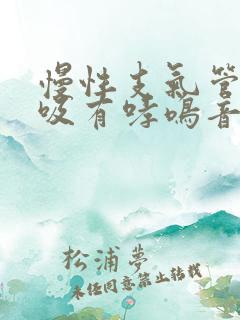 慢性支氣管
吸有哮鳴音
松浦夢
未經同意禁止轉載